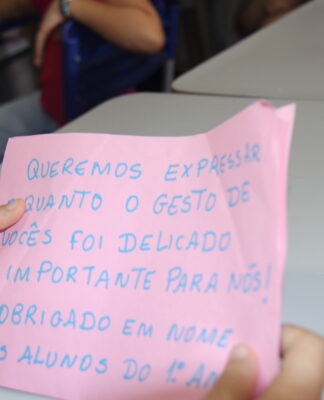 QUEREMOS EXPRESSAR
QUANTO O GESTO DE
VOCÊS FOI DELICADO
IMPORTANTE PARA NÓS!
OBRIGADO EM NOME
S ALUNOS DO 1º AN